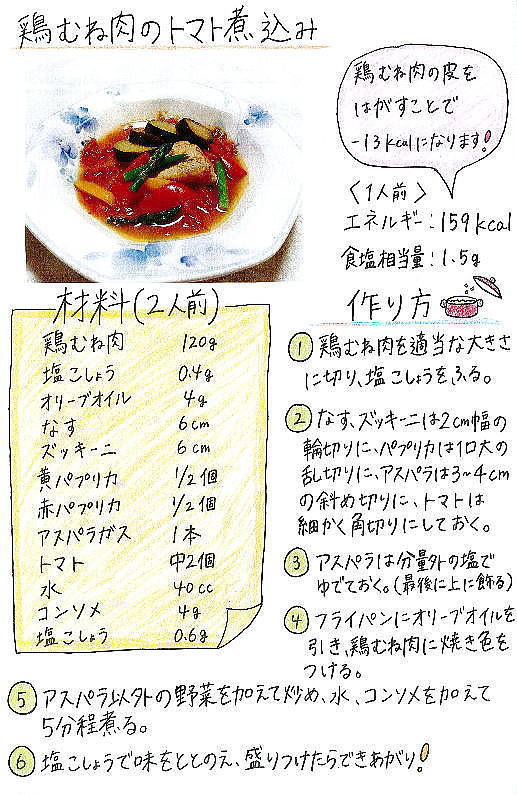 鶏むね肉のトマト煮込み
鶏むね肉の皮を
はがすことで
-13kcalになります!
〈1人前〉
エネルギー:159kcal
食塩相当量:1.5g
材料(2人前)
鶏むね肉 120g
塩こしょう 0.4g
オリーブオイル 4g
なす 6cm
ズッキーニ 6cm
黄パプリカ 1/2個
赤パプリカ 1/2個
アスパラガス 1本
トマト 中2個
水 40cc
コンソメ 4g
塩こしょう 0.6g
作り方
① 鶏むね肉を適当な大きさ
に切り、塩こしょうをふる。
② なす、ズッキーニは2cm幅の
輪切りに、パプリカは1口大の
乱切りに、アスパラは3~4cm
の斜め切りに、トマトは
細かく角切りにしておく。
③ アスパラは分量外の塩で
ゆでておく。(最後に上に飾る)
④ フライパンにオリーブオイルを
引き、鶏むね肉に焼き色を
つける。
⑤ アスパラ以外の野菜を加えて炒め、水、コンソメを加えて
5分程煮る。
⑥ 塩こしょうで味をととのえ、盛りつけたらできあがり!